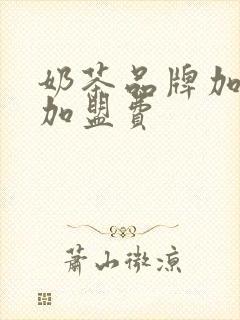 奶茶品牌加
加盟费
蕭山微凉